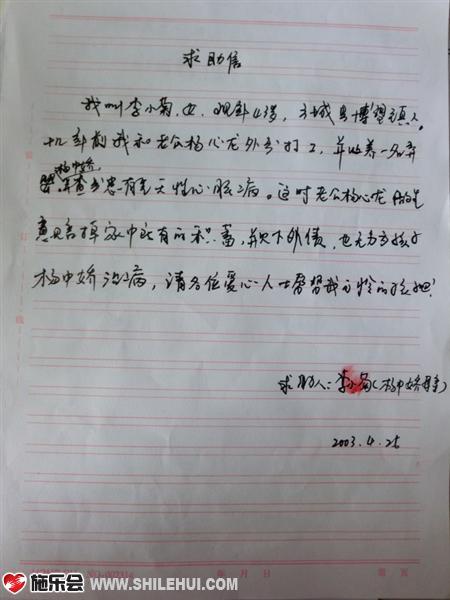 求助信
我叫李小菊,女,现年42岁,方城县博望镇人。
九年前我和老公杨心龙外出打工,并收养一名弃
婴,杨中娇,查出患有先天性心脏病。这时老公杨心龙
意见花掉家中所有的积蓄,并欠下外债,也无力为孩子
杨中娇治病,请各位爱心人士帮帮我可怜的孩子吧!
求助人:李小菊(杨中娇母亲)
2003.4.25
年 月 日 第 页
施乐会 WWW.SHILEHUI.COM